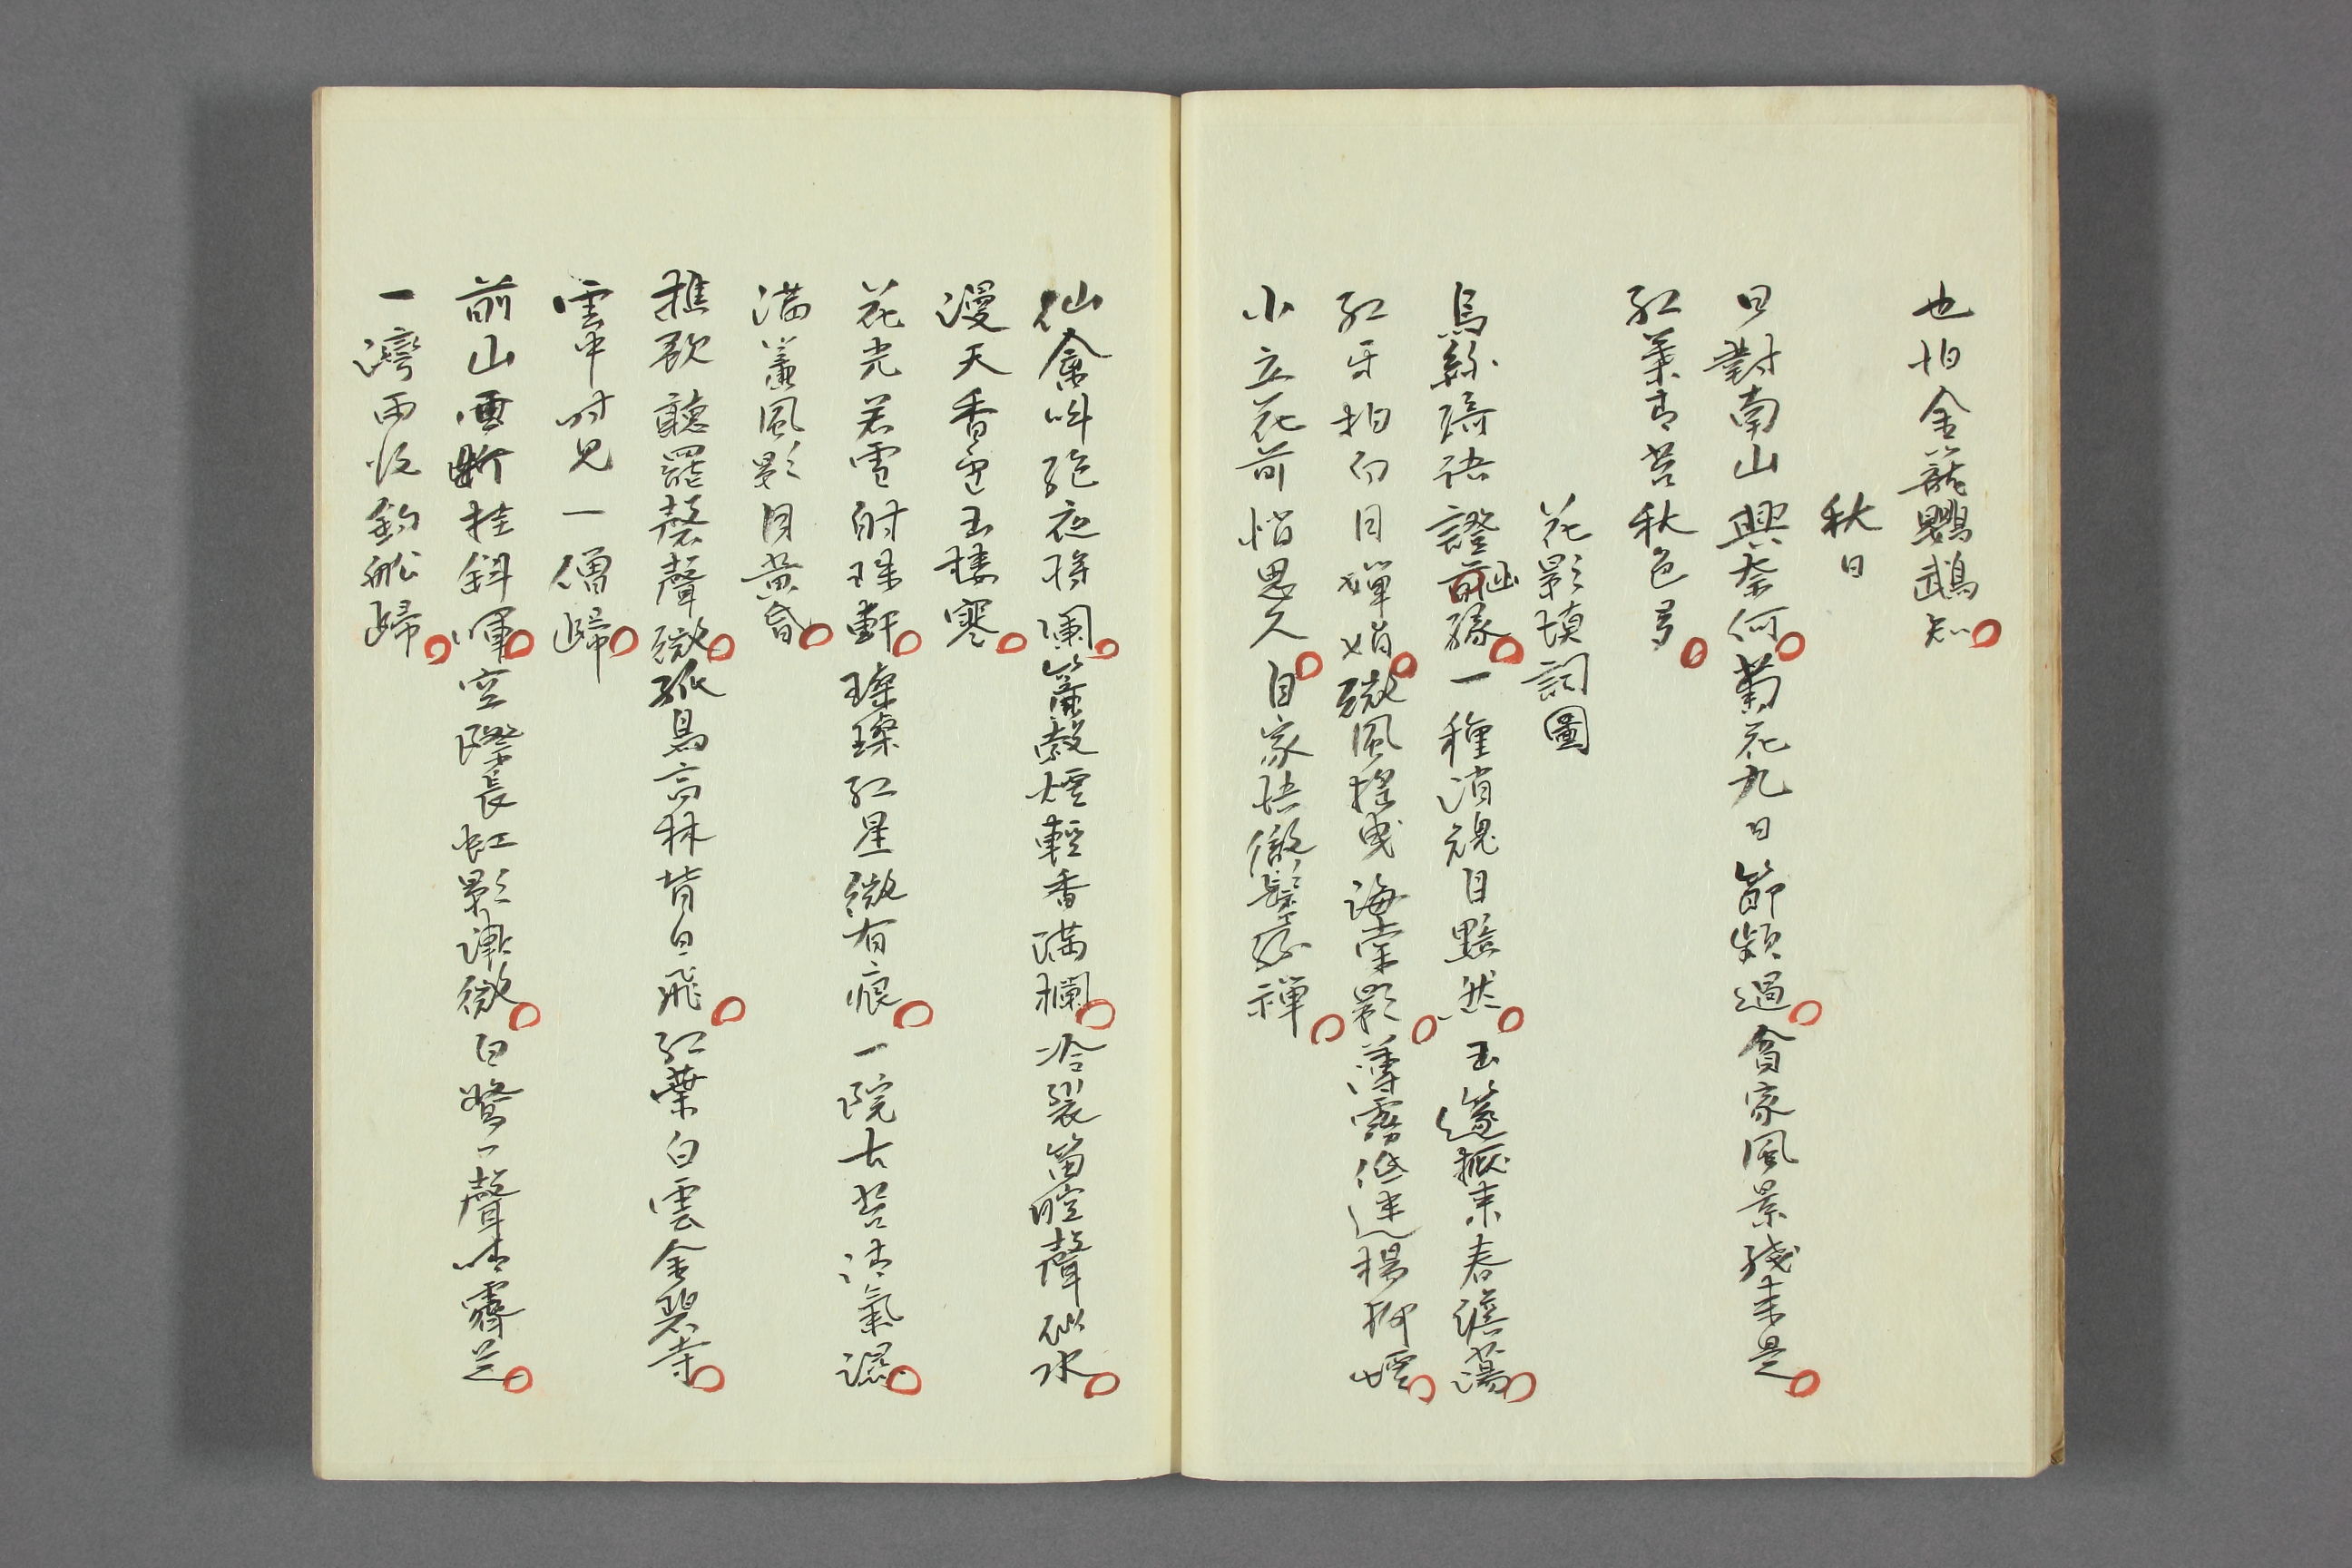 也怕金籠鸚鵡知
秋日
日對南山興奈何菊花九日節頻過貧家風景殘未是
紅葉青苔秋色多
花影填詞圖
烏絲琦語證前緣一種消魂目黯然玉邃搬來春澹蕩
紅牙拍向月嬋娟微風搖曳海棠影薄霧低迷楊柳煙
小立花前悄思久自家悟徹鬢絲禪
仙禽叫絕夜將闌簾縠煙輕香滿欄冷裂笛腔聲似水
漫天香雪玉樓寒
花光若雪射珠軒璨璨紅星微有痕一院古苔清氣濕
滿簾風影月黃昏
樵歌聽罷磬聲微孤鳥高林背日飛紅葉白雲金碧寺
雲中時見一僧歸
前山雨斷挂斜暉空際長虹影漸微白鷺一聲晴霽
一灣雨收釣船歸